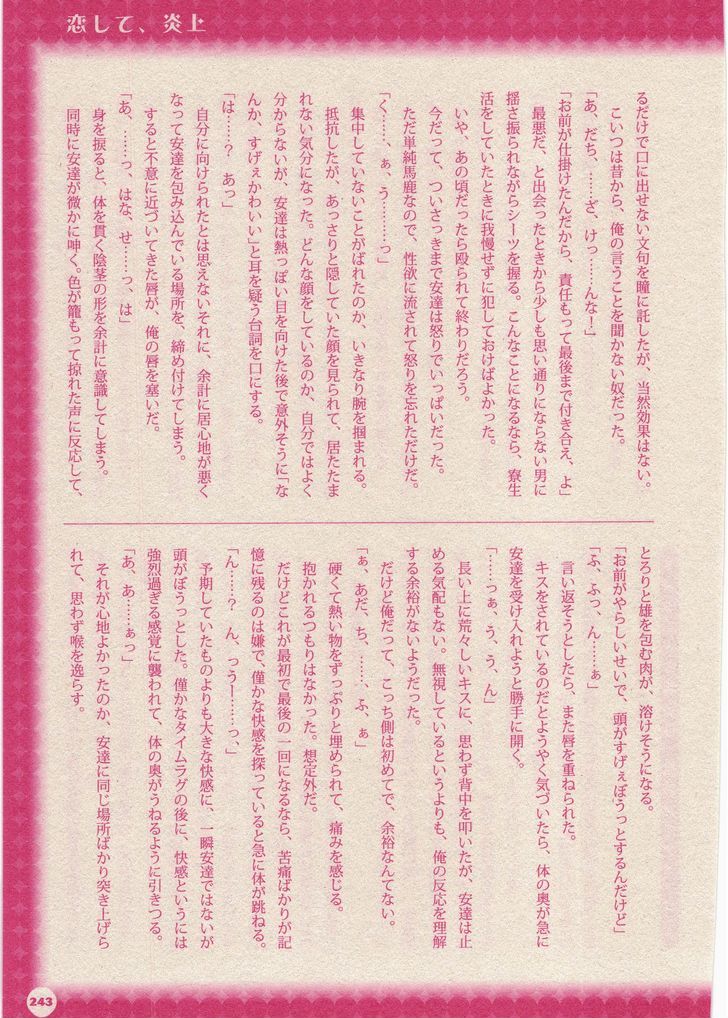 恋して、炎上
るだけで口に出せない文句を瞳に託したが、当然効果はない。
こいつは昔から、俺の言うことを聞かない奴だった。
「あ、だち、……ざ、けっ……んなー」
「お前が仕掛けたんだから、責任もって最後まで付き合え、よ」
最悪だ、と出会ったときから少しも思い通りにならない男に
揺さ振られながらシーツを握る。こんなことになるなら、寮生
活をしていたときに我慢せずに犯しておけばよかった。
いや、あの頃だったら殴られて終わりだろう。
今だって、ついさっきまで安達は怒りでいっぱいだった。
ただ単純馬鹿なので、性欲に流されて怒りを忘れただけだ。
「く……、ぁ、う……っ」
集中していないことがばれたのか、いきなり腕を掴まれる。
抵抗したが、あっさりと隠していた顔を見られて、居たたま
れない気分になった。どんな顔をしているのか、自分ではよく
分からないが、安達は熱っぽい目を向けた後で意外そうに「な
んか、すげぇかわいい」と耳を疑う台詞を口にする。
「は……？　あっ」
自分に向けられたとは思えないそれに、余計に居心地が悪く
なって安達を包み込んでいる場所を、締め付けてしまう。
すると不意に近づいてきた唇が、俺の唇を塞いだ。
「あ、……っ、はな、せ……っ、は」
身を捩ると、体を貫く陰茎の形を余計に意識してしまう。
同時に安達が微かに呻く。色が籠もって掠れた声に反応して、
とろりと雄を包む肉が、溶けそうになる。
「お前がやらしいせいで、頭がすげぇぼうっとするんだけど」
「ふ、ふっ、ん……ぁ」
言い返そうとしたら、また唇を重ねられた。
キスをされているのだとようやく気づいたら、体の奥が急に
安達を受け入れようと勝手に開く。
「……っぁ、う、う、ん」
長い上に荒々しいキスに、思わず背中を叩いたが、安達は止
める気配もない。無視しているというよりも、俺の反応を理解
する余裕がないようだった。
だけど俺だって、こっち側は初めてで、余裕なんてない。
「ぁ、あだ、ち、……、ふ、ぁ」
硬くて熱い物をずっぷりと埋められて、痛みを感じる。
抱かれるつもりはなかった。想定外だ。
だけどこれが最初で最後の一回になるなら、苦痛ばかりが記
憶に残るのは嫌で、僅かな快感を探っていると急に体が跳ねる。
「ん……？　ん、っうー……っ、」
予期していたものよりも大きな快感に、一瞬安達ではないが
頭がぼうっとした。僅かなタイムラグの後に、快感というには
強烈過ぎる感覚に襲われて、体の奥がうねるように引きつる。
「あ、あ……ぁっ」
それが心地よかったのか、安達に同じ場所ばかり突き上げら
れて、思わず喉を逸らす。
243